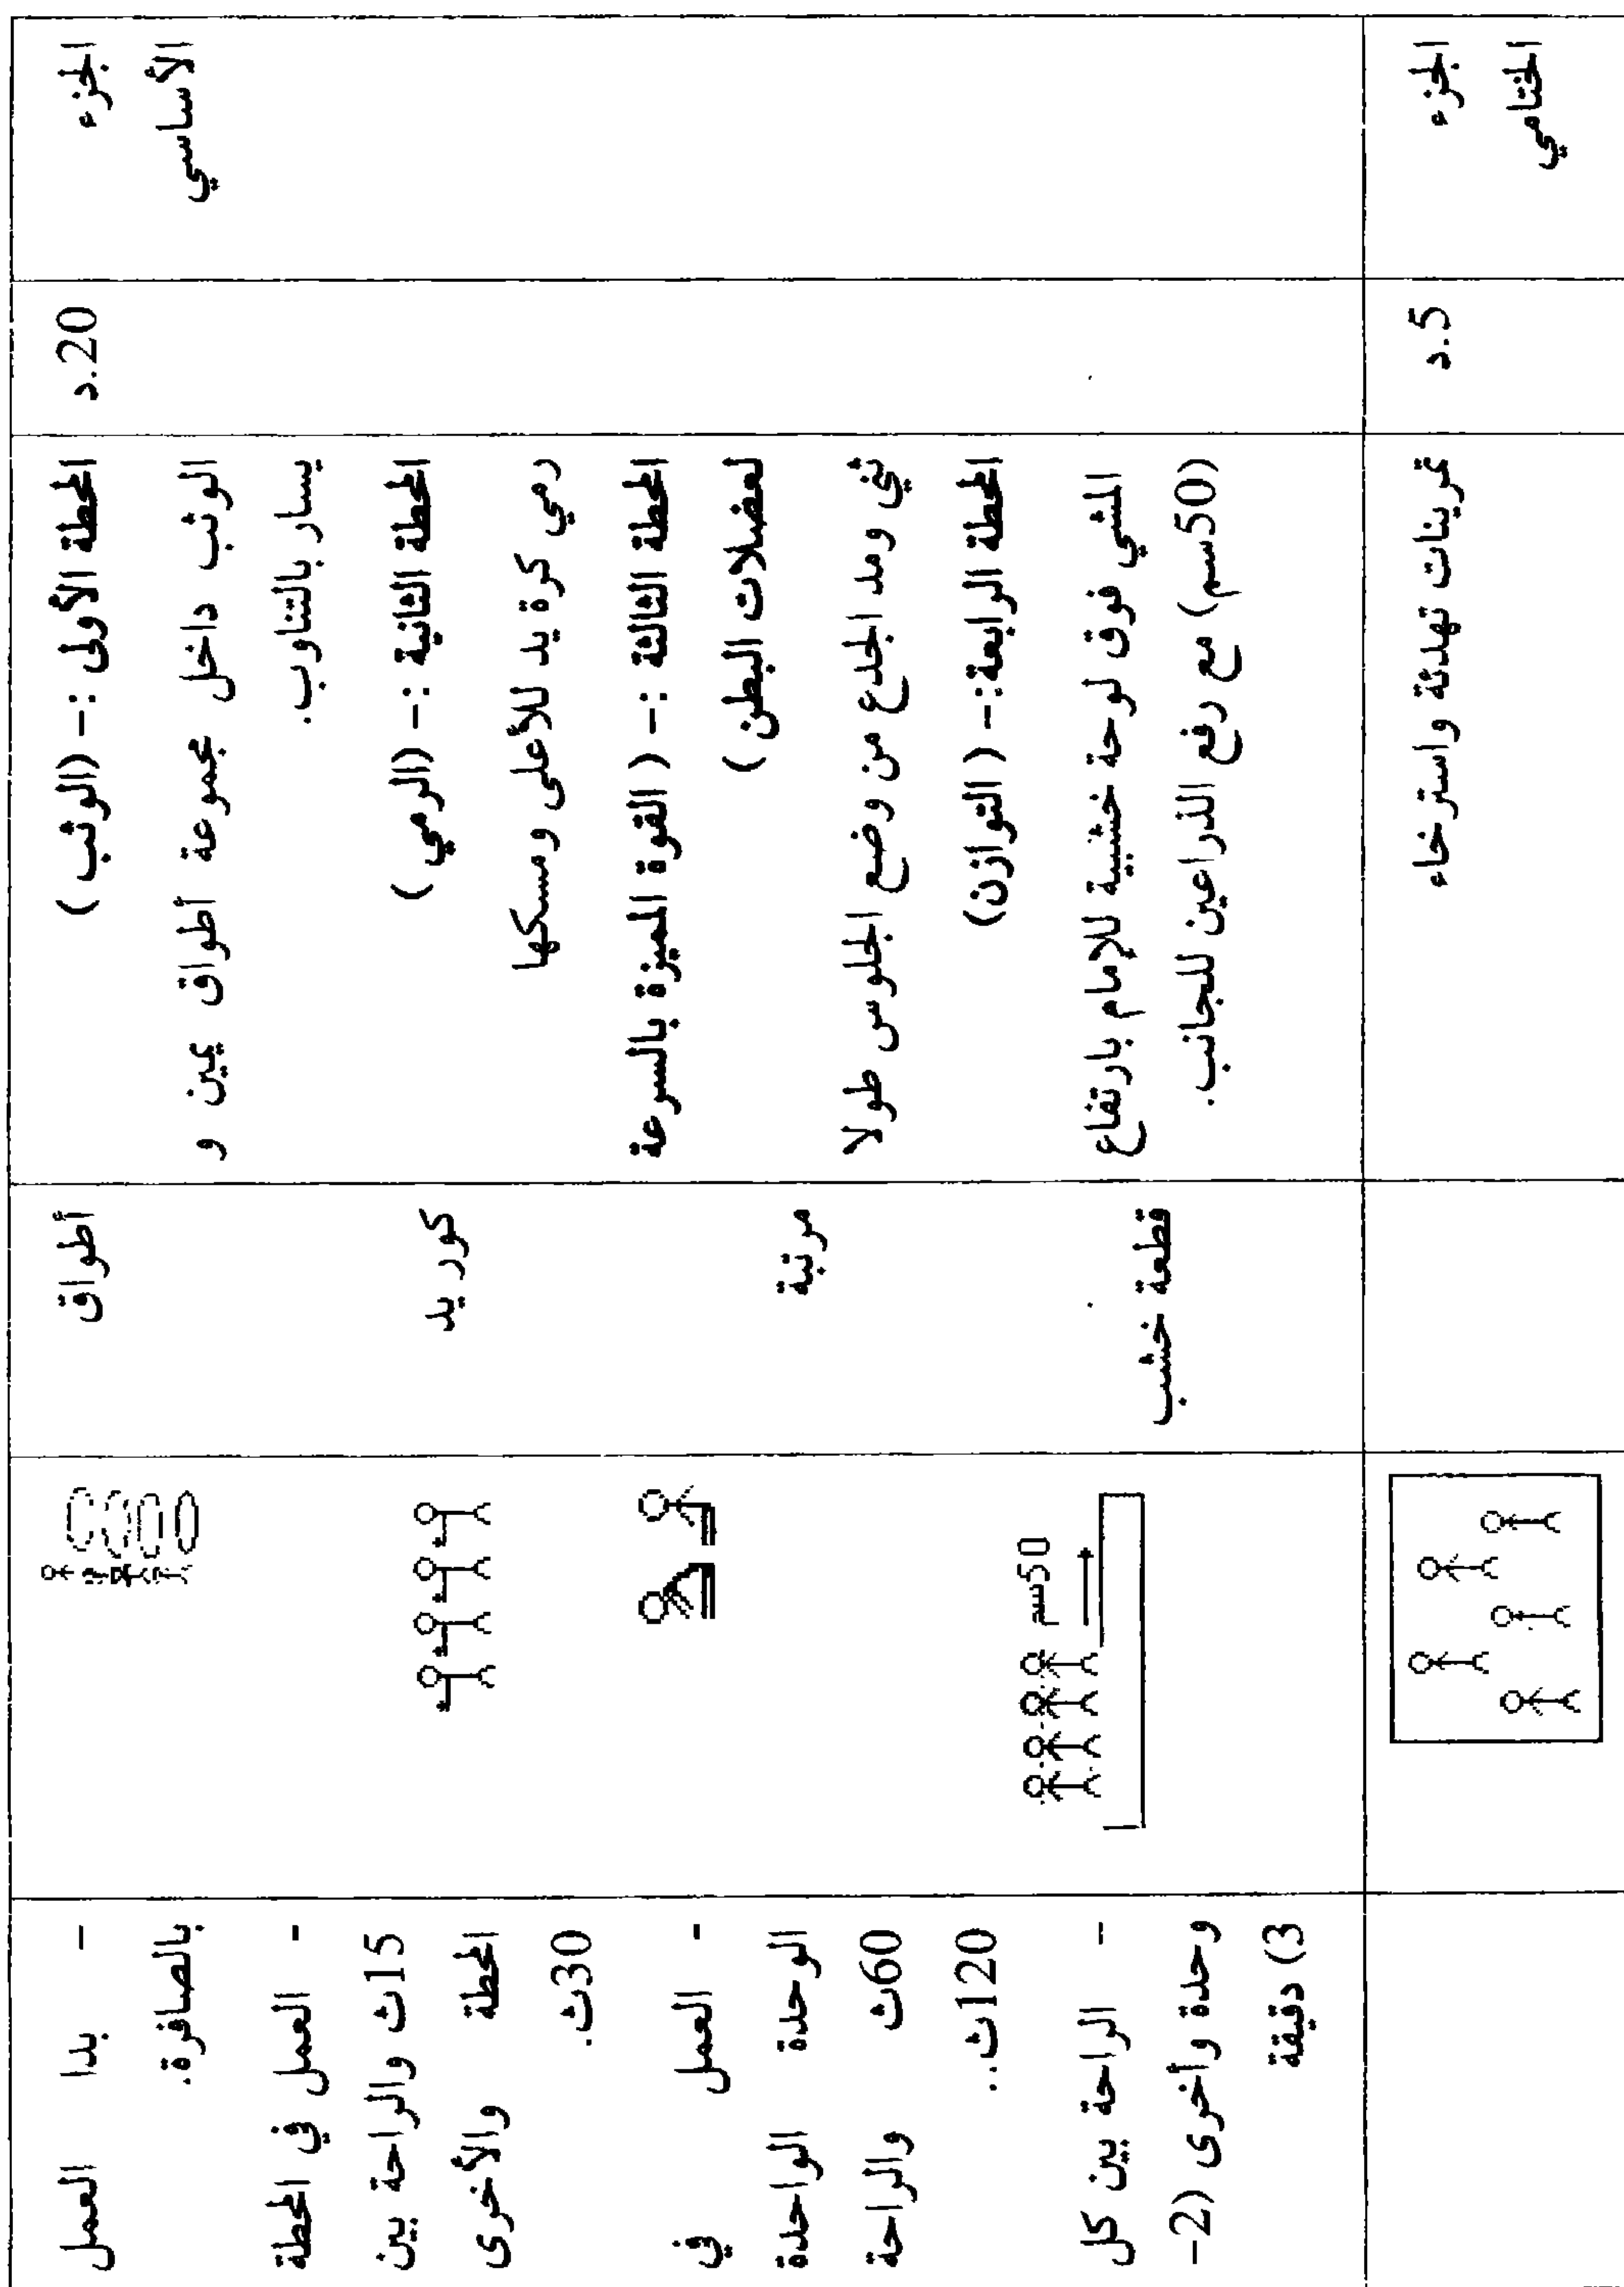 الجزء
الأساسي
20.د
المحطة الأولى :- (الوثب )
الوثب داخل مجموعة أطواق يمين و
يسار بالتناوب.
المحطة الثانية :- (الرمي )
رمي كرة يد للأعلى ومسكها
المحطة الثالثة :- ( القوة المميزة بالسرعة
لعضلات البطن )
ثني ومد الجذع من وضع الجلوس طولا
المحطة الرابعة:- ( التوازن)
المشي فوق لوحة خشبية للإمام بارتفاع
(50سم) مع رفع الذراعين للجانب.
أطواق
كور يد
مرتبة
قطعة خشب
50سم
- بدا العمل
بالصافرة.
- العمل في المحطة
15ث والراحة بين
المحطة والأخرى
30ث.
- العمل في
الوحدة الواحدة
60ث والراحة
120ث..
- الراحة بين كل
وحدة وأخرى (2-
3) دقيقة
الجزء
الختامي
5.د
تمرينات تهدئة واسترخاء